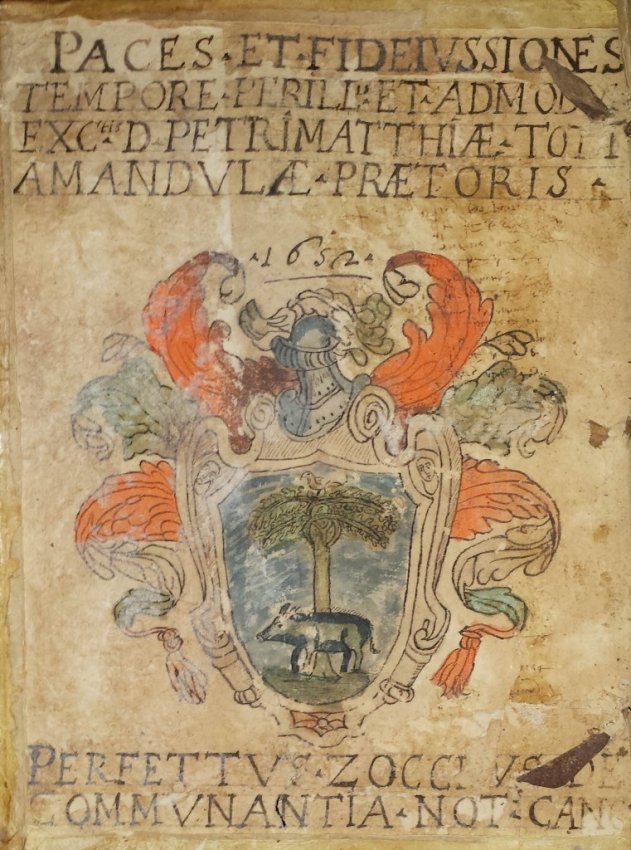 PACES · ET · FIDEIVSSIONES
TEMPORE · PERILL · ET · ADMOD
EXC D · PETRI MATTHIÆ ·
AMANDVLÆ · PRÆTORIS ·
· 1652 ·
PERFETTVS · DE
COMMVNANTIA · NOT · CANC